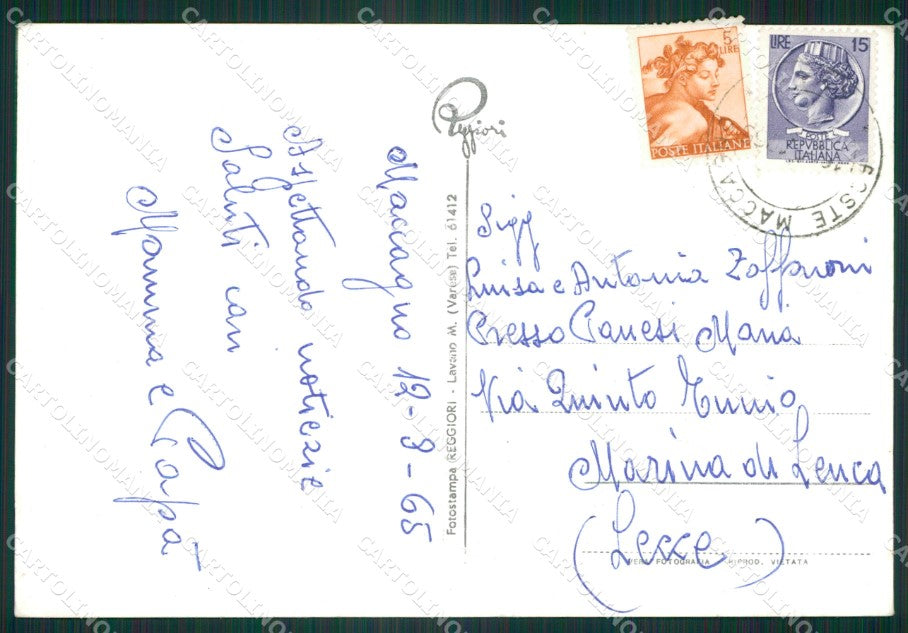 Maccagno 12-8-65
Aspettando notizie
Saluti cari
Mamma e Papà
Reggiori
Fotostampa REGGIORI - Laveno M. (Varese) Tel. 61412
5 LIRE
POSTE ITALIANE
LIRE 15
POSTE
REPVBBLICA
ITALIANA
POSTE MACCA
Sigg
Luisa e Antonia Zoffononi
Presso Panesi Maria
Via Quinto Ennio
Marina di Leuca
(Lecce)
VERA FOTOGRAFIA RIPROD. VIETATA
CARTOLINOMANIA